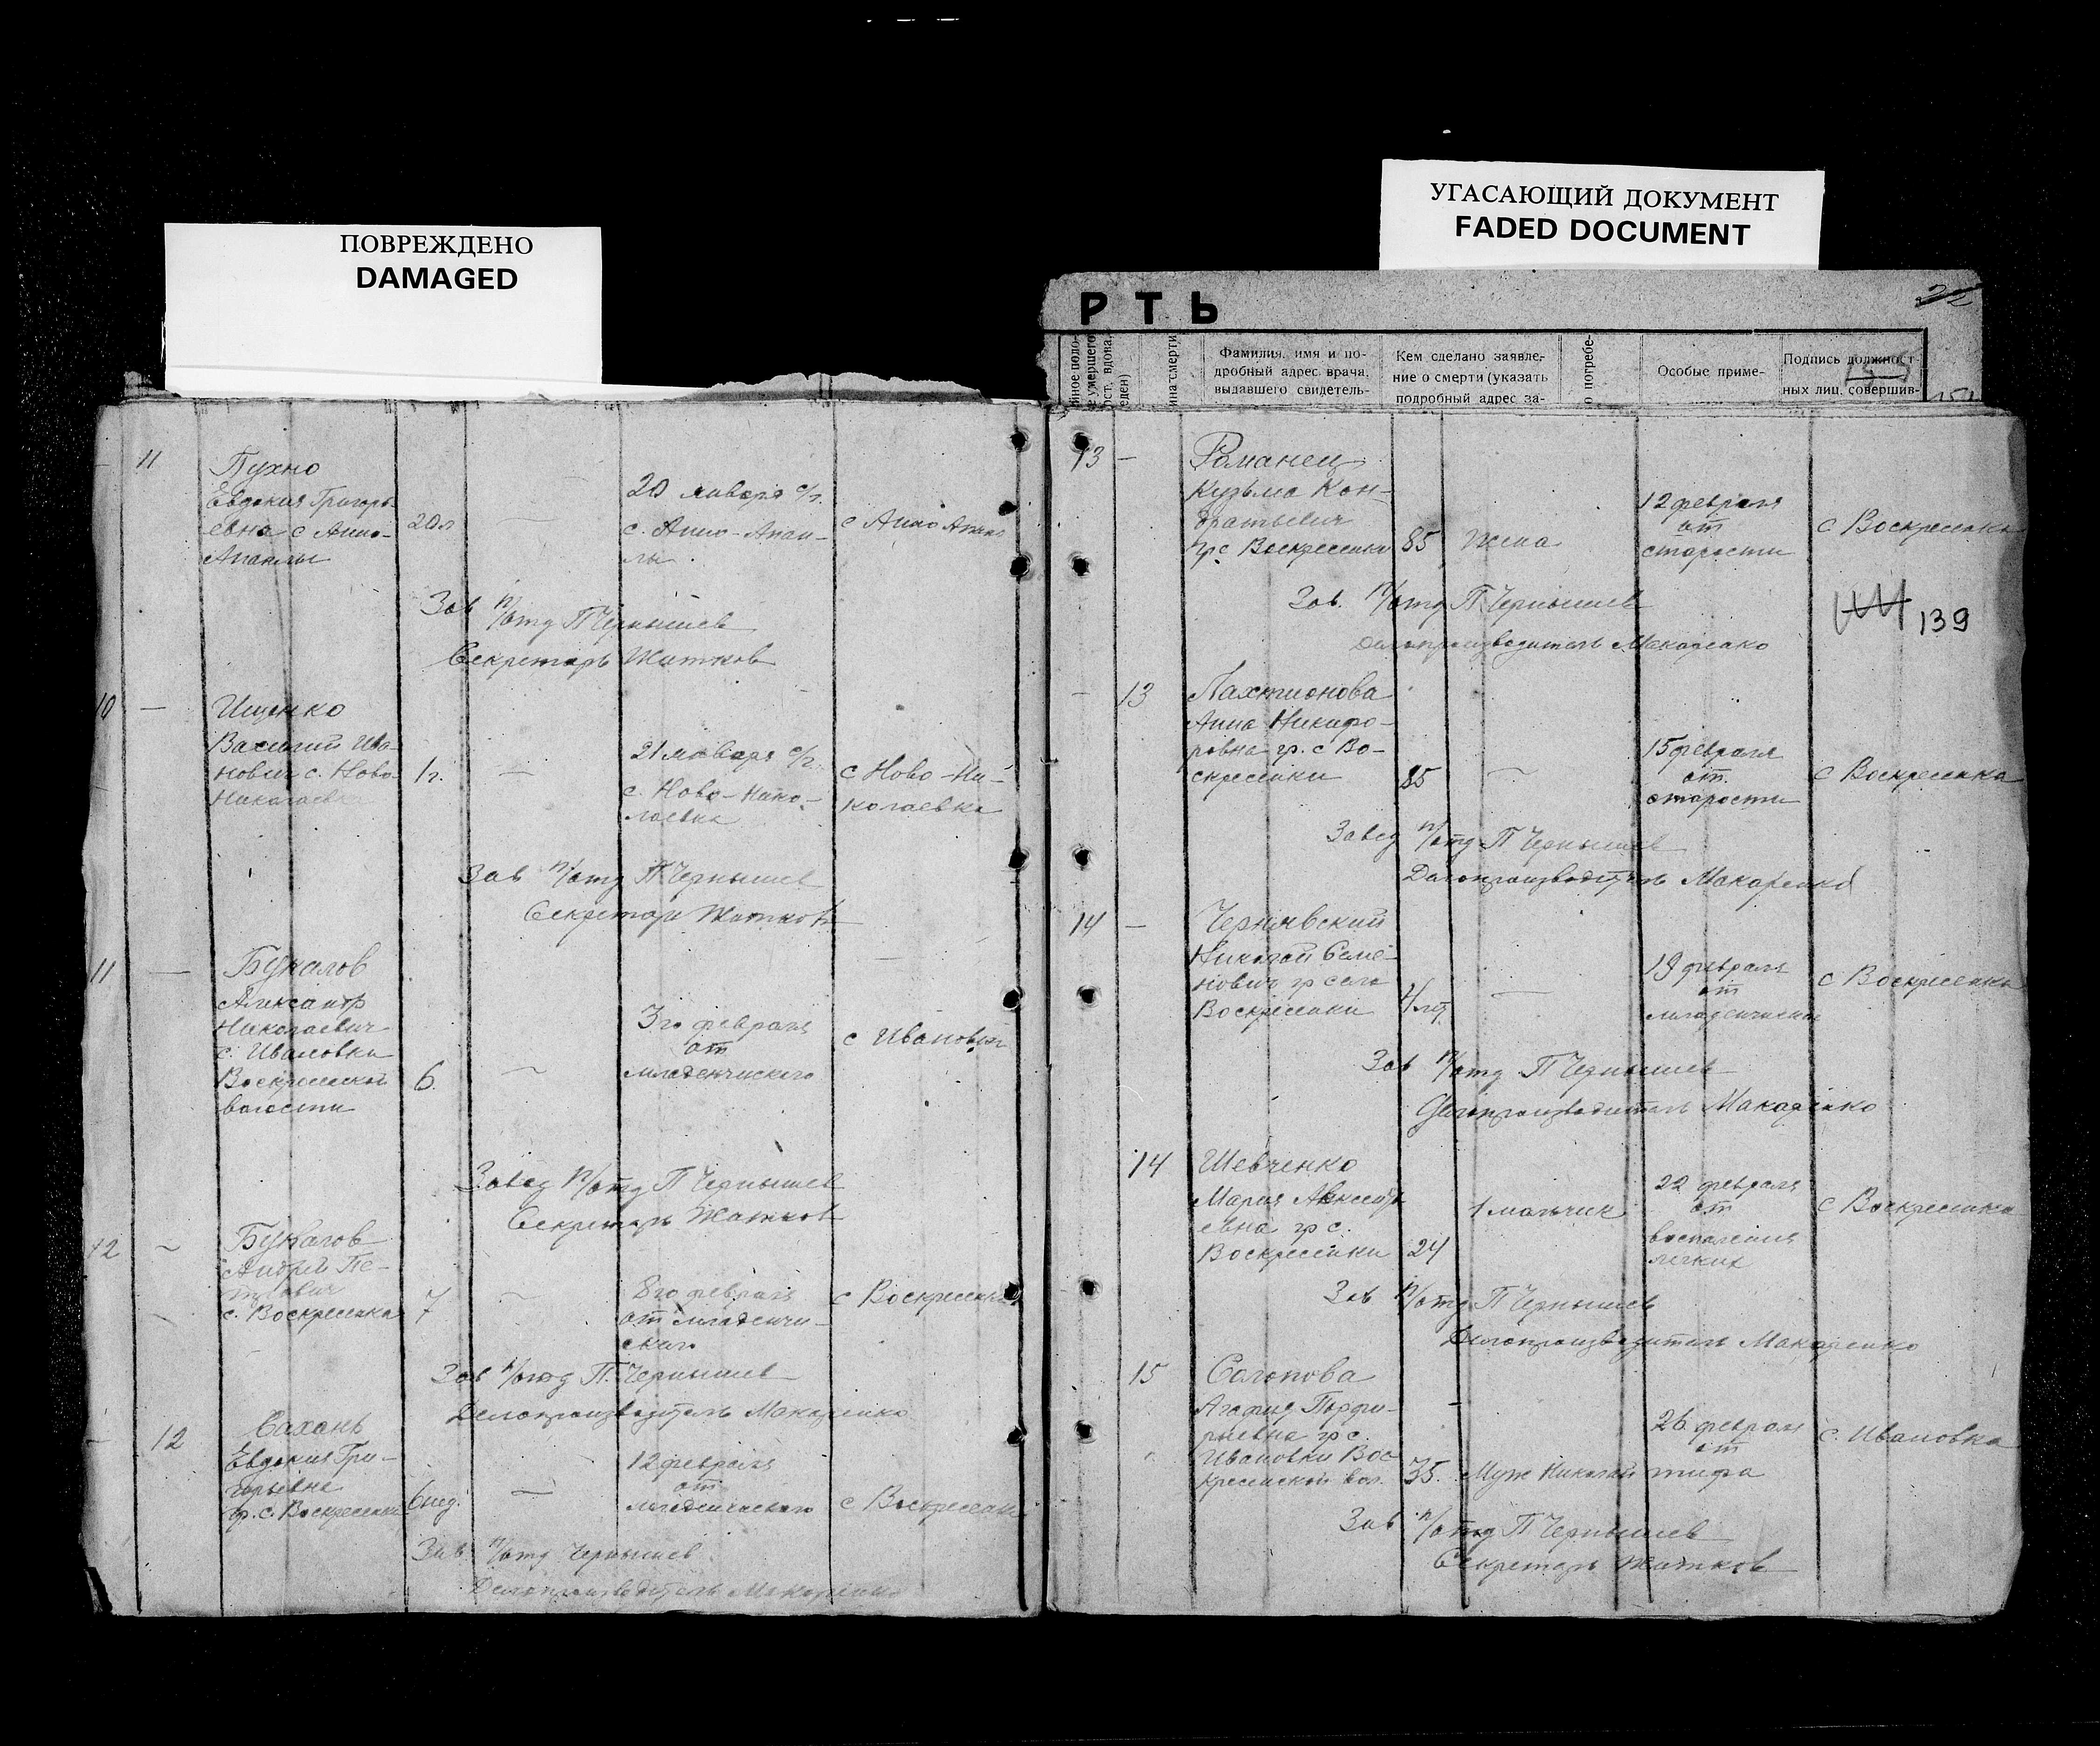 ПОВРЕЖДЕНО
DAMAGED
УГАСАЮЩИЙ ДОКУМЕНТ
FADED DOCUMENT
РТЬ
22
Фамилия, имя и по-
дробный адрес врача,
выдавшего свидетель-
Кем сделано заявле-
ние о смерти (указать
подробный адрес за-
о погребе-
Особые приме-
Подпись должност-
ных лиц, совершив-
11
Пухно
Евдокия Григорь-
евна с Анно-
20л
20 января с/г.
с. Анно-
Зав п/отд П Чернышев
Секретарь Житков
10 —
Ищенко
Василий Ива-
нович с. Ново-
Николаевка
1г.
—
21 января с/г.
с. Ново-Нико-
лаевка
с Ново-Ни-
колаевка
Зав п/отд П. Чернышев
Секретарь Житков
11 —
Букалов
Александр
Николаевич
с. Ивановки
Воскресенской
волости
6
—
3го февраля
от
младенческого
с Ивановки
Завед п/отд П Чернышев
Секретарь Житков
12 —
Букалов
Андрей Пе-
трович
с. Воскресенка
7
—
8го февраля
от младенче-
ского
с Воскресенка
Зав п/отд П. Чернышев
Делопроизводитель Макаренко
— 12
Сахань
Евдокия Гри-
горьевна
гр. с. Воскресенки
6 нед.
—
12 февраля
от
младенческого
с Воскресенка
Зав п/отд Чернышев
Делопроизводитель Макаренко
13 —
Романец
Кузьма Кон-
дратьевич
гр с Воскресенки
85
Жена
12 февраля
от
старости
с Воскресенка
139
Зав. п/отд П. Чернышев
Делопроизводитель Макаренко
— 13
Лахтионова
Анна Никифо-
ровна гр. с Во-
скресенки
85
—
15 февраля
от
старости
с Воскресенка
Завед п/отд П Чернышев
Делопроизводитель Макаренко
14 —
Чернявский
Николай Семе-
нович гр села
Воскресенки
—
19 февраля
от
с Воскресенка
Зав п/отд П Чернышев
Делопроизводитель Макаренко
14
Шевченко
Мария Алексе-
евна гр с.
Воскресенки
24
1 мальчик
22 февраля
от
воспаления
легких
с Воскресенка
Зав п/отд П Чернышев
Делопроизводитель Макаренко
15
Солопова
Агафия Порфи-
рьевна гр с.
Ивановки Вос-
кресенской вол.
35.
Муж Николай
26 февраля
от
тифа
с. Ивановка
Зав п/отд П Чернышев
Секретарь Житков